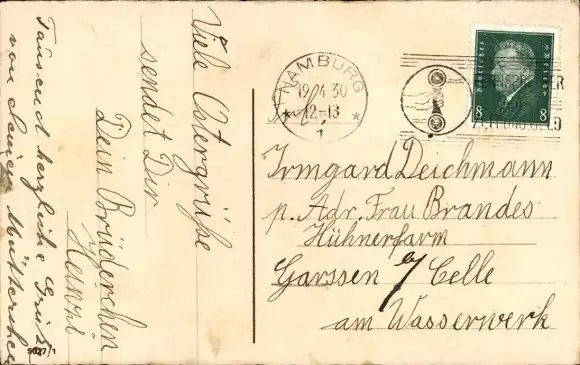 Tausend herzliche Grüße
von Deinem Mütterchen
Viele Ostergrüße
sendet Dir
Dein Brüderchen
Heinzi
5027/1
HAMBURG
19.4.30
12-13
* 1 *
Deutsches Reich
8 8
Irmgard Deichmann
p. Adr. Frau Brandes
Hühnerfarm
Garssen b/ Celle
am Wasserwerk